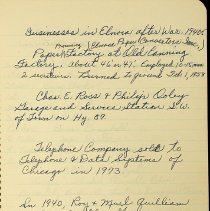 Businesses in Elnora after War, 1940s
running (Elnora Paper Converters Inc.)
Paper Factory at Old Canning
Factory. about 46 or 47. Employed 10-15 men
2 sections. Burned to ground Feb 1, 1958
Chas. E. Ross & Philip Oxley
Garage and Service Station S.W.
of Town on Hy 57.
Telephone Company sold to
Telephone & Data Systems of
Chicago in 1973.
In 1940, Roy & Muriel Quillliam